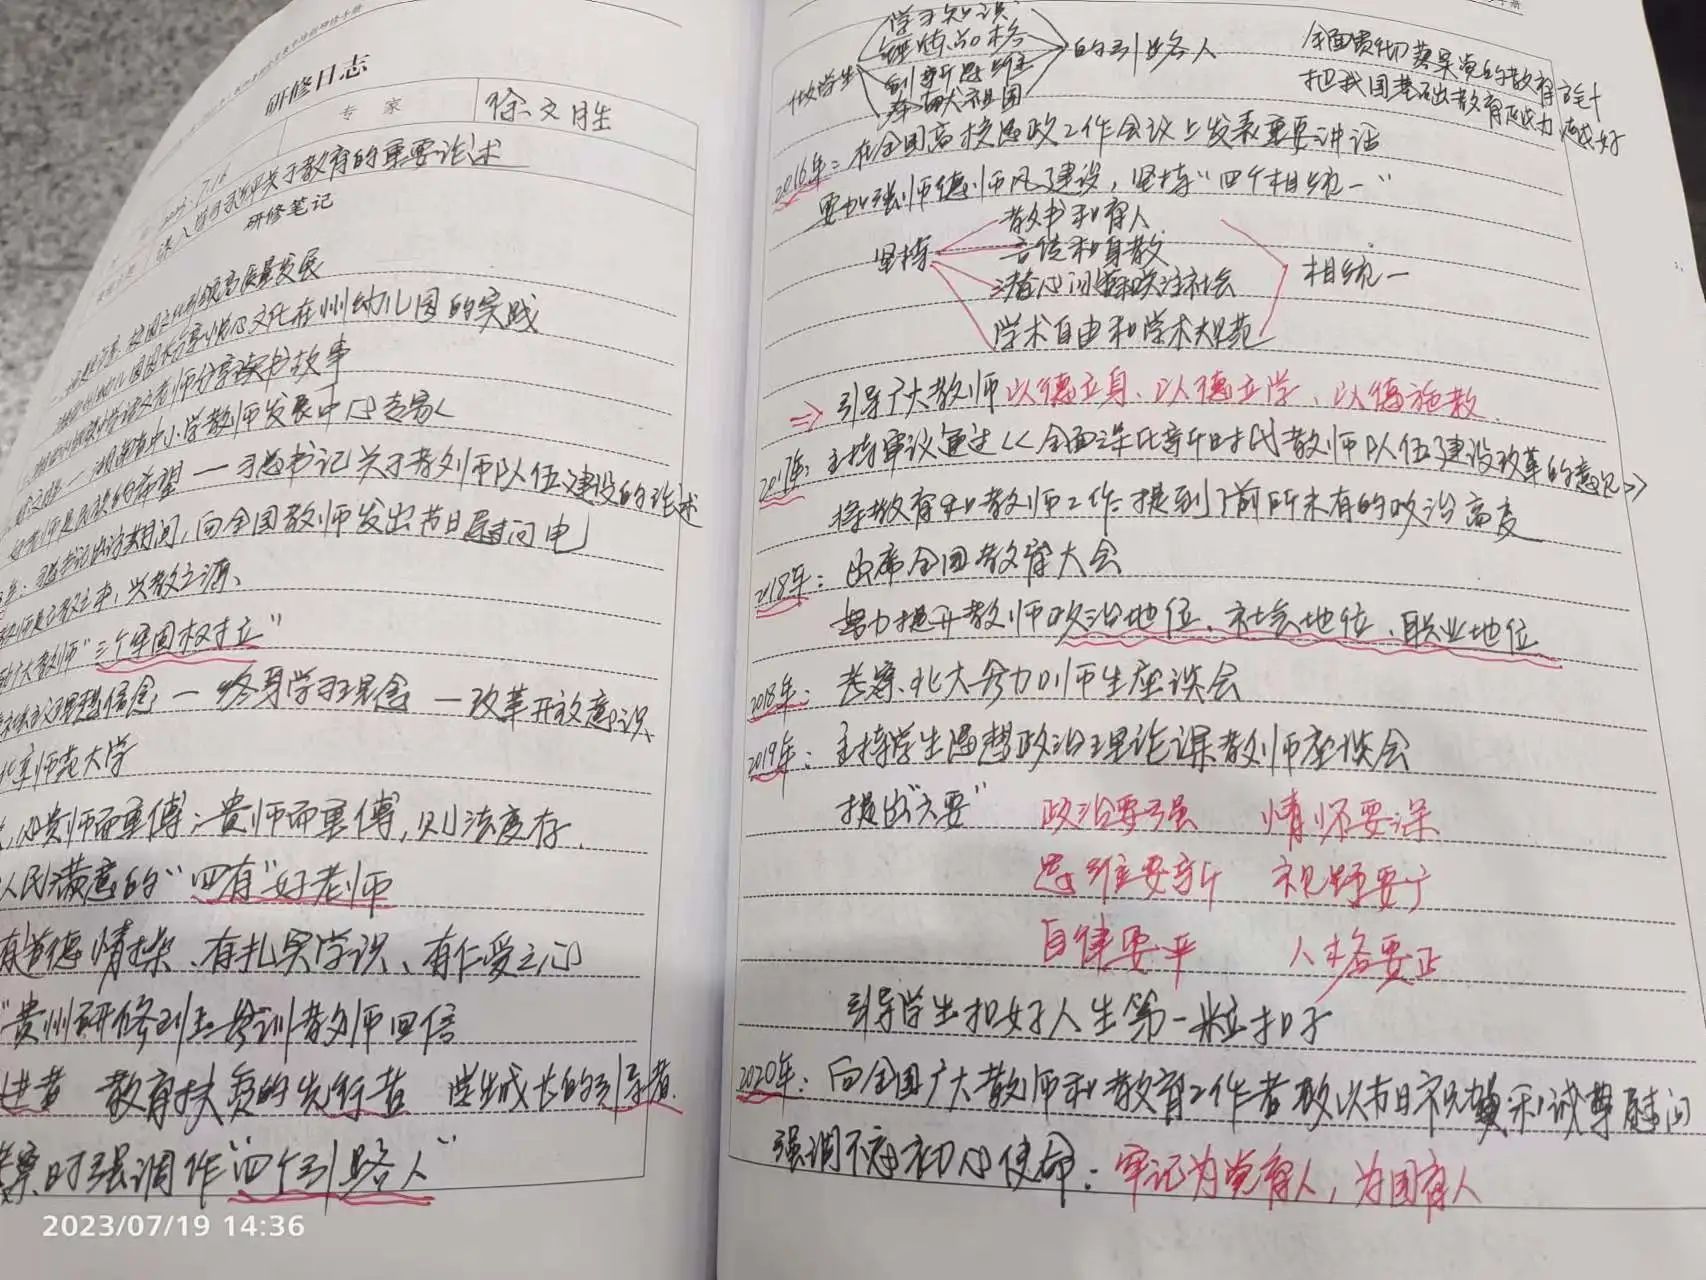 研修日志
专家
徐文胜
深入学习习近平关于教育的重要论述
研修笔记
高质量发展
文化在州幼儿园的实践
老师分享读书故事
中小学教师发展中心专家
希望一习总书记关于教师队伍建设的论述
期间,向全国教师发出节日慰问电
教师是立教之本,兴教之源、
广大教师"三个牢固树立"
理想信念 一 终身学习理念 一 改革开放意识、
北京师范大学
,必贵师而重傅;贵师而重傅,则法度存.
人民满意的"四有"好老师
有道德情操、有扎实学识、有仁爱之心
"贵州研修班参训教师回信
进者 教育扶贫的先行者 学生成长的引导者.
考察时强调作"四个引路人"
做学生
学习知识
锤炼品格
创新思维
奉献祖国
的引路人
全面贯彻落实党的教育方针
把我国基础教育越办越好
2016年:在全国高校思政工作会议上发表重要讲话
要加强师德师风建设,坚持"四个相统一"
坚持
教书和育人
言传和身教
潜心问道和关注社会
学术自由和学术规范
相统一
⇒ 引导广大教师以德立身、以德立学、以德施教.
2017年:主持审议通过《全面深化新时代教师队伍建设改革的意见》
将教育和教师工作提到了前所未有的政治高度
2018年:出席全国教育大会
努力提升教师政治地位、社会地位、职业地位
2018年:考察北大参加师生座谈会
2019年:主持学生思想政治理论课教师座谈会
提出"六要" 政治要强 情怀要深
思维要新 视野要广
自律要严 人格要正
引导学生扣好人生第一粒扣子
2020年:向全国广大教师和教育工作者致以节日祝贺和诚挚慰问
强调不忘初心使命:牢记为党育人,为国育人
2023/07/19 14:36